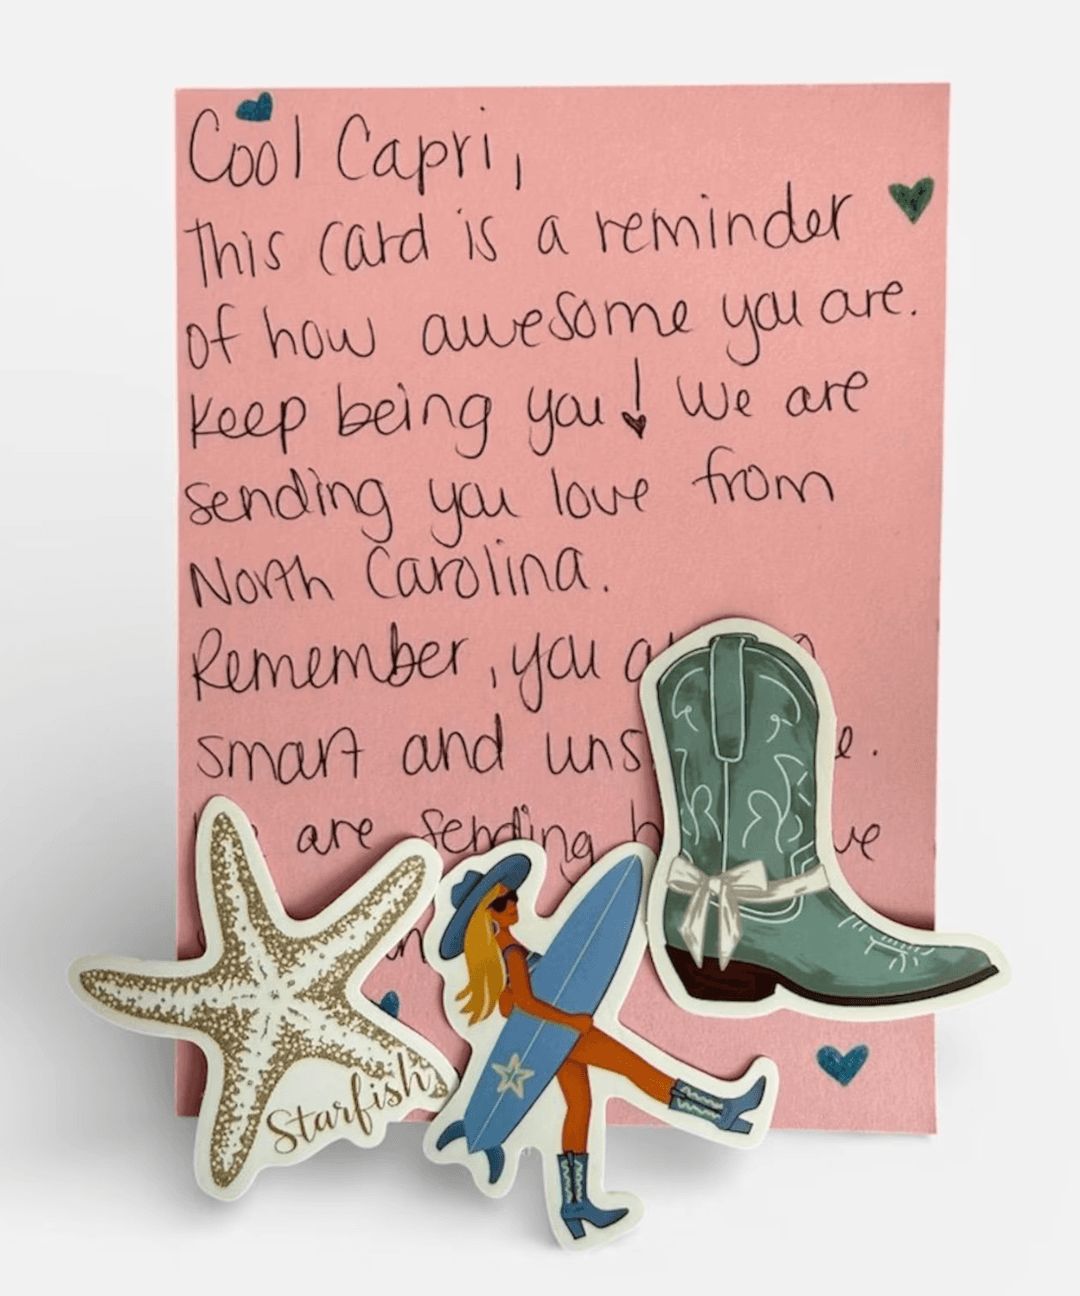 Cool Capri,
This card is a reminder
of how awesome you are.
Keep being you! We are
sending you love from
North Carolina.
Remember, you
smart and
are sending
Starfish